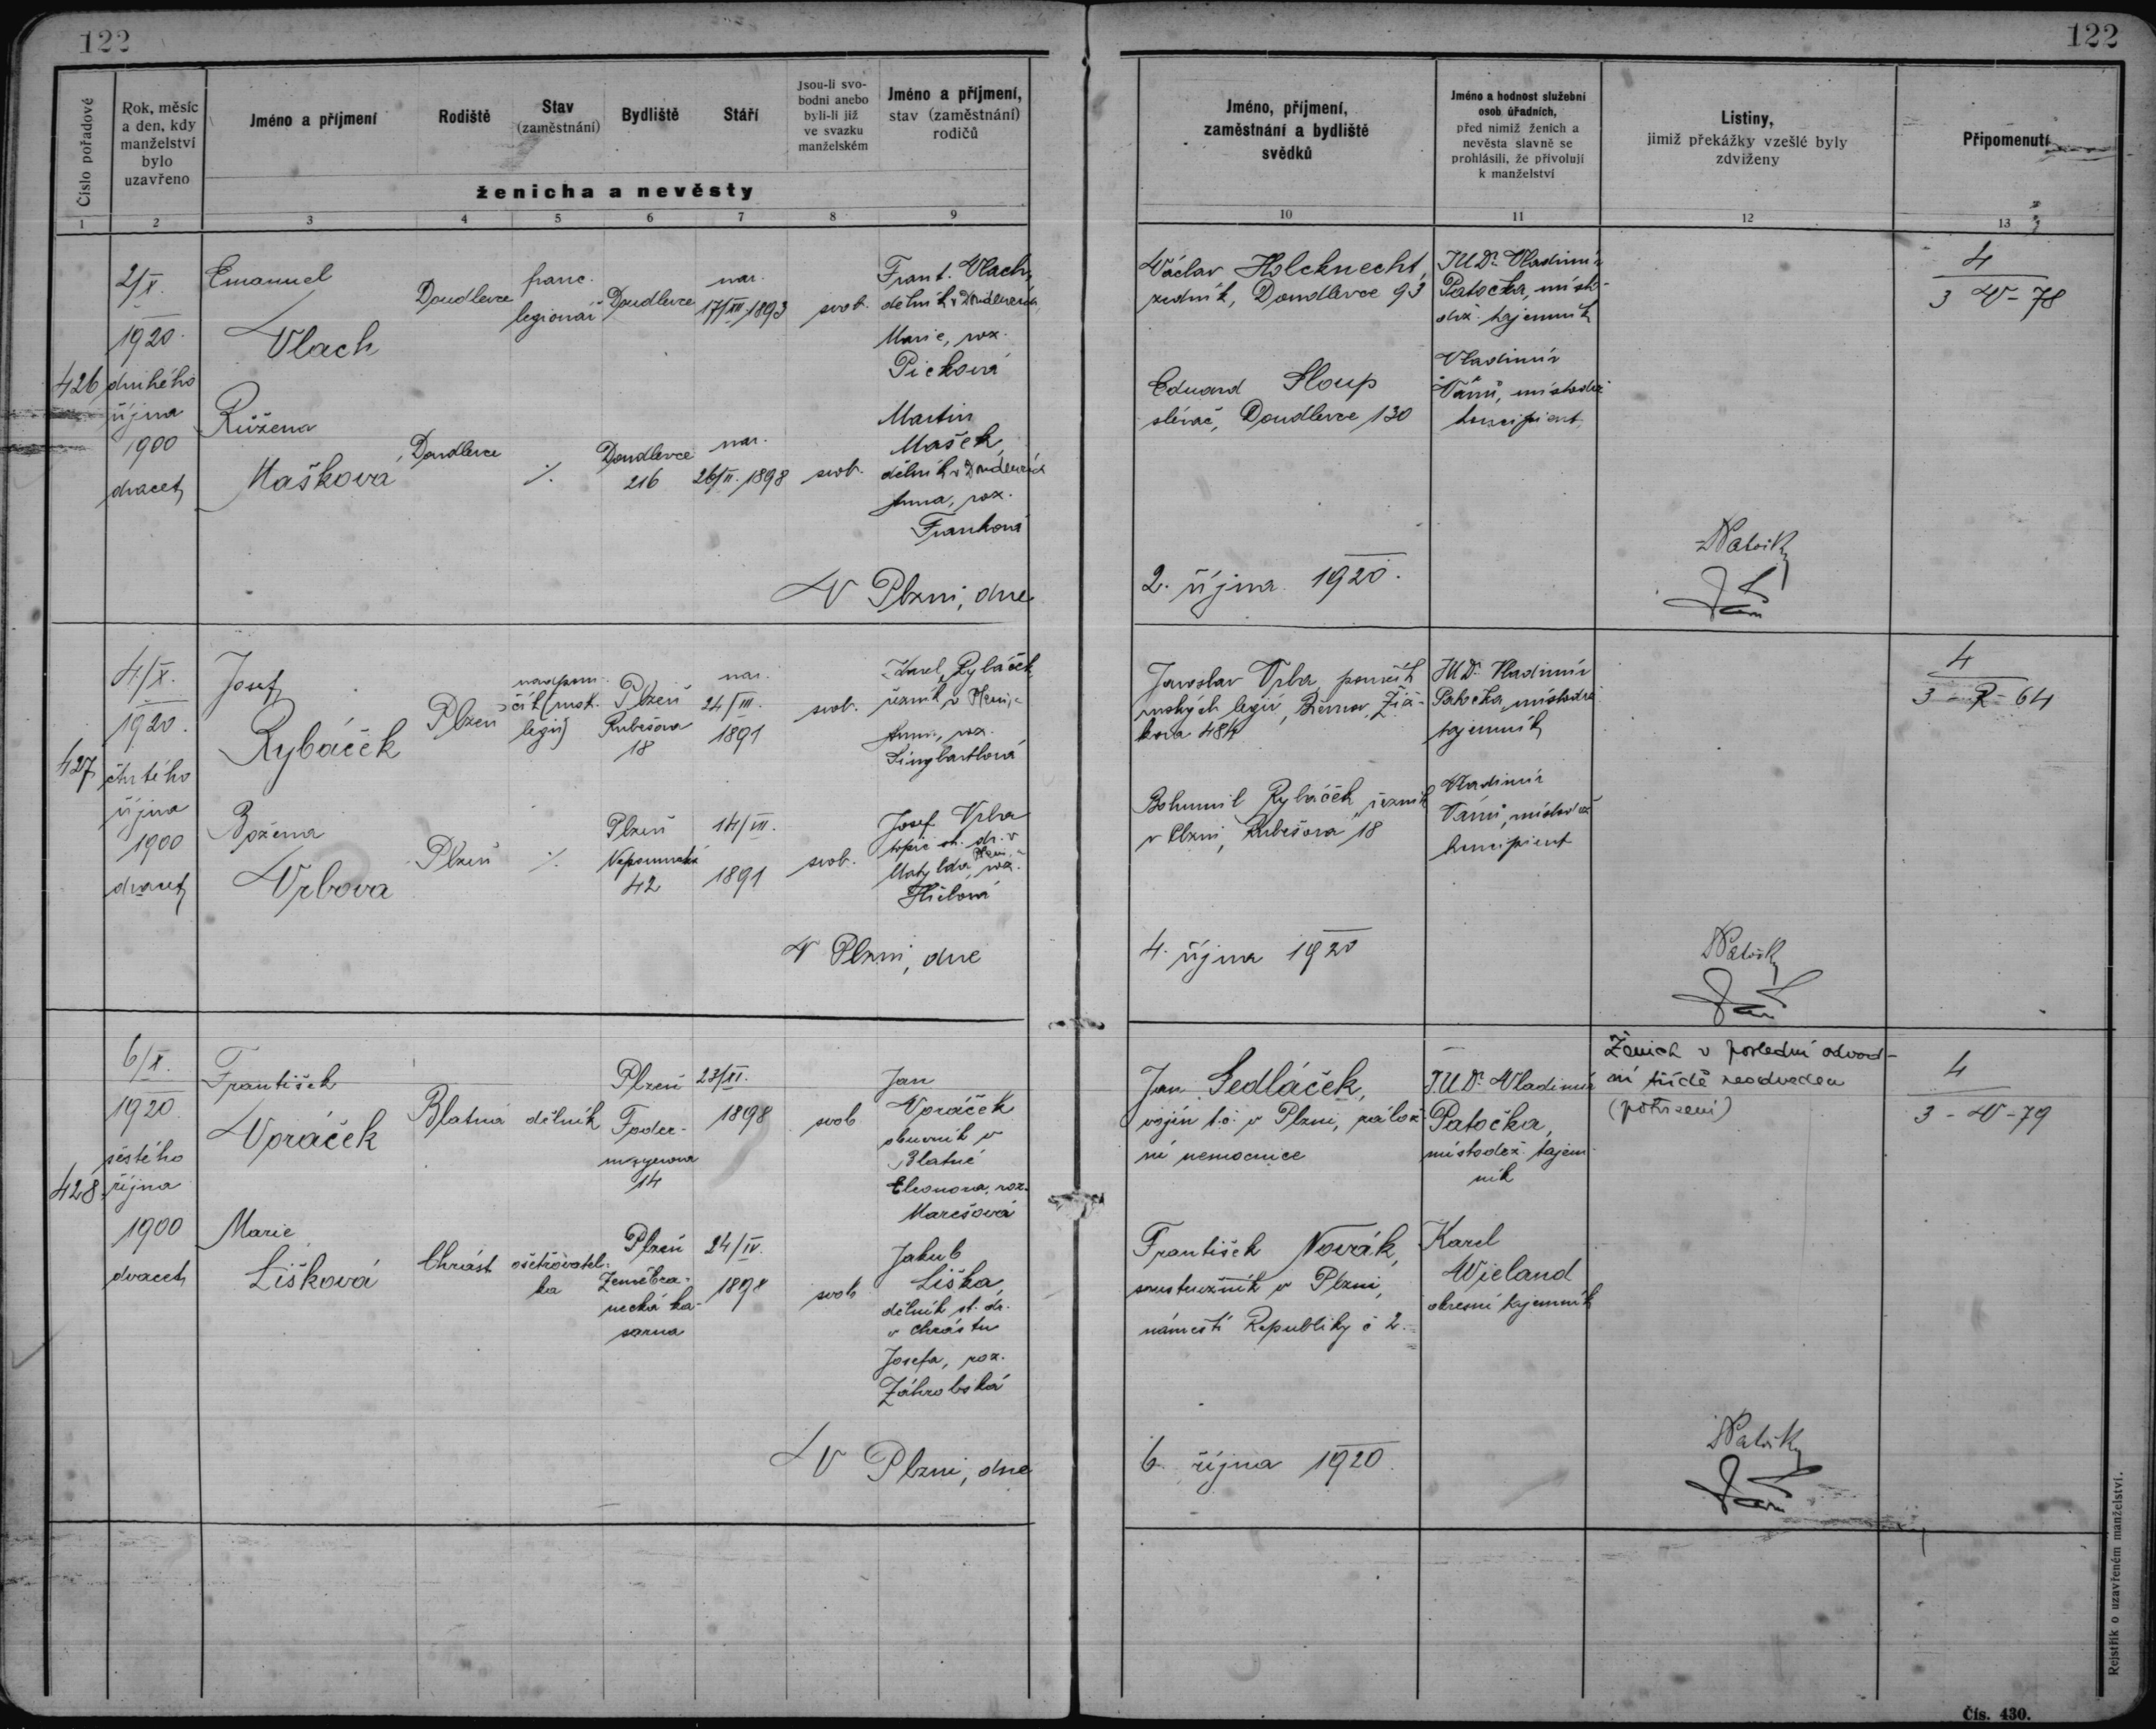 122
122
Číslo pořadové
Rok, měsíc
a den, kdy
manželství
bylo
uzavřeno
Jméno a příjmení
Rodiště
Stav
(zaměstnání)
Bydliště
Stáří
Jsou-li svo-
bodni anebo
byli-li již
ve svazku
manželském
Jméno a příjmení,
stav (zaměstnání)
rodičů
ženicha a nevěsty
1 2 3 4 5 6 7 8 9
Jméno, příjmení,
zaměstnání a bydliště
svědků
Jméno a hodnost služební
osob úřadních,
před nimiž ženich a
nevěsta slavně se
prohlásili, že přivolují
k manželství
Listiny,
jimiž překážky vzešlé byly
zdviženy
Připomenutí
10 11 12 13
426
2/X.
1920.
druhého
října
1900
dvacet
Emanuel
Vlach
Doudlevce
franc.
legionář
Doudlevce
nar.
17/XII.1893
svob.
Frant. Vlach,
dělník v Doudlevcích,
Marie, roz.
Picková
Růžena
Mašková
Doudlevce
./.
Doudlevce
216
nar.
26/II.1898
svob.
Martin
Mašek,
dělník v Doudlevcích
Anna, roz.
Franková
V Plzni, dne
Václav Holcknecht,
zedník, Doudlevce 93
Eduard Sloup
slévač, Doudlevce 130
JUDr. Vladimír
Patočka, místo-
drž. tajemník
Vladimír
Váňů, místodrž.
koncipient
4
3 V - 78
2. října 1920.
427
4/X.
1920.
čtvrtého
října
1900
dvacet
Josef
Rybáček
Plzeň
legií)
Plzeň
Rubešova
18
nar.
24/III.
1891
svob.
Karel Rybáček,
řezník v Plzni,
Anna, roz.
Singbartlová
Božena
Vrbova
Plzeň
./.
Plzeň
Nepomucká
42
14/III.
1891
svob.
Josef Vrba
topič st. dr. v
Plzni,
Matylda, roz.
V Plzni, dne
Jaroslav Vrba, poručík
ruských legií, Břevnov, Žiž-
kova 484
Bohumil Rybáček, řezník
v Plzni, Rubešova 18
JUDr. Vladimír
Patočka, místodrž.
tajemník
Vladimír
Váňů, místodrž.
koncipient
4
3 - R - 64
4. října 1920
428
6/X.
1920.
šestého
října
1900
dvacet
František
Voráček
Blatná
dělník
Plzeň
Foder-
mayerova
14
23/XI.
1898
svob
Jan
Voráček
obuvník v
Blatné
Eleonora, roz.
Marešová
Marie
Lišková
Chrást
ošetřovatel-
ka
Plzeň
Zeměbra-
necká ka-
sárna
24/IV.
1898
svob
Jakub
Liška,
dělník st. dr.
v Chrástu
Josefa, roz.
Záhrobská
V Plzni, dne
Jan Sedláček,
vojín t.č. v Plzni, zálož-
ní nemocnice
František Novák,
soustružník v Plzni,
náměstí Republiky č 2.
JUDr. Vladimír
Patočka,
místodrž. tajem
ník
Karel
Wieland
okresní tajemník
Ženich v poslední odvod-
ní třídě neodveden
(potvrzení)
4
3 - V - 79
6. října 1920.
Rejstřík o uzavřeném manželství.
Čís. 430.